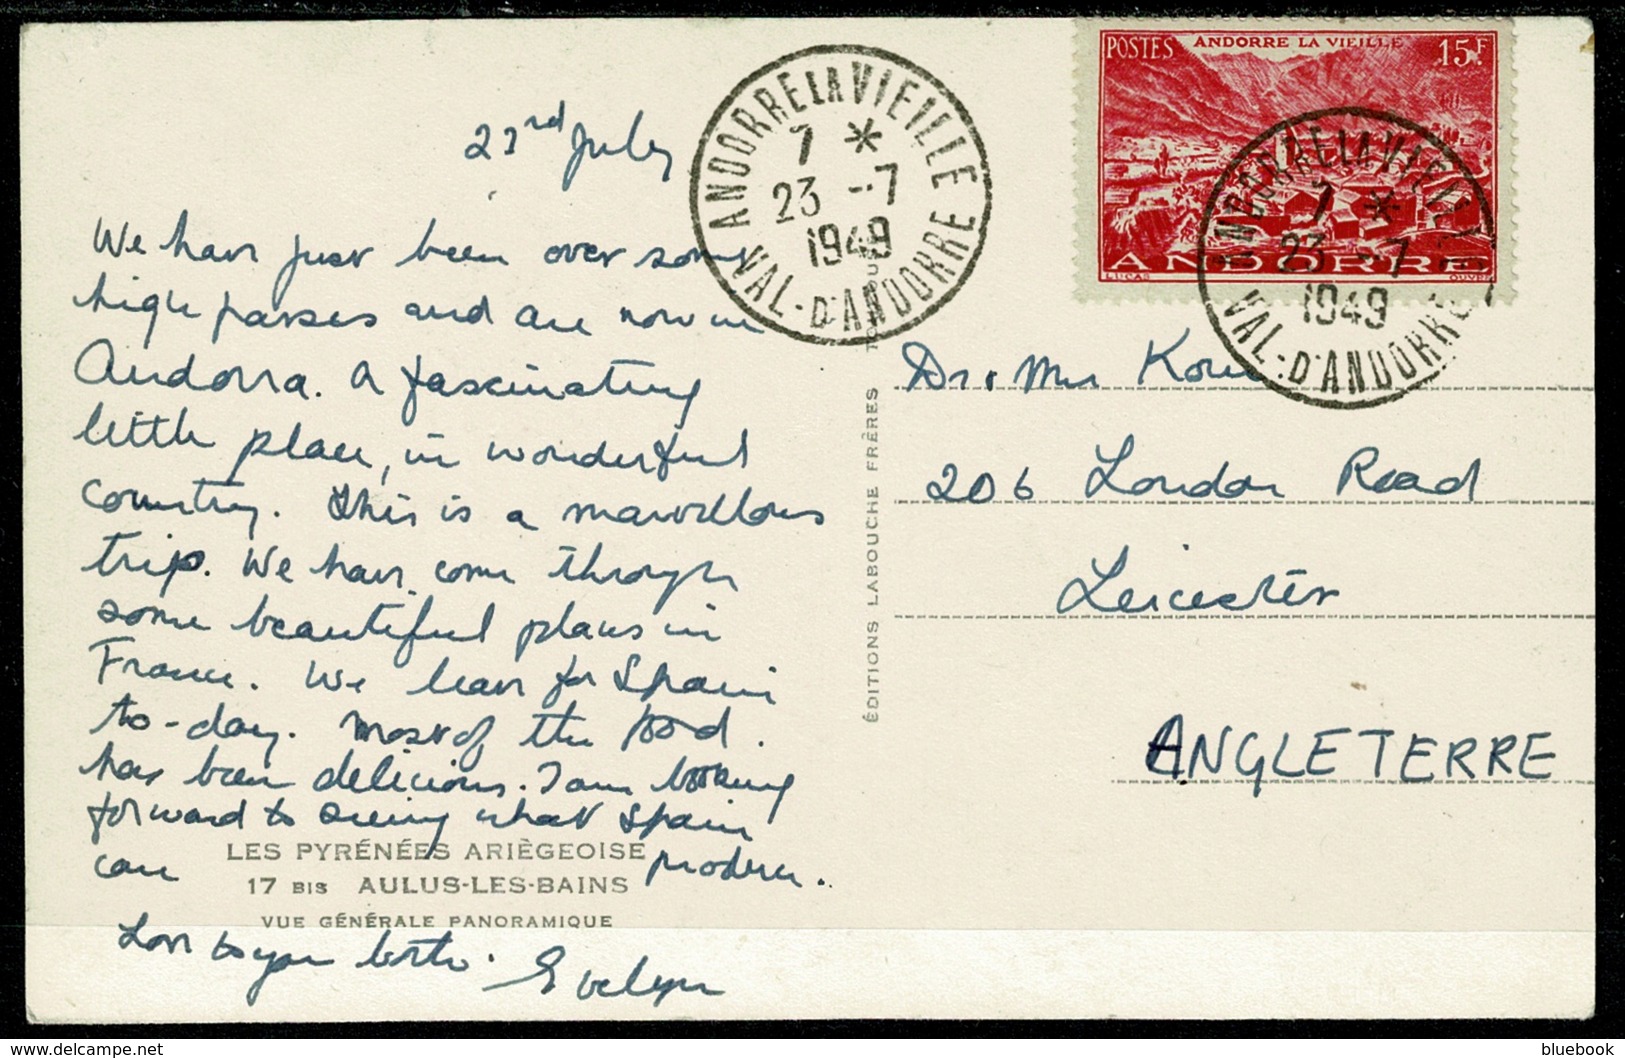 23rd July
We have just been over some
high passes and are now in
Andorra. A fascinating
little place, in wonderful
country. This is a marvellous
trip. We have come through
some beautiful places in
France. We leave for Spain
to-day. Most of the food
has been delicious. I am looking
forward to seeing what Spain
can produce.
Love to you both.
Evelyn
LES PYRÉNÉES ARIÈGEOISE
17 BIS AULUS-LES-BAINS
VUE GÉNÉRALE PANORAMIQUE
ÉDITIONS LABOUCHE FRÈRES
ANDORRE LA VIEILLE
7 *
23 -7
1949
VAL-D'ANDORRE
POSTES ANDORRE LA VIEILLE 15F
ANDORRE
LUCAS OUVRÉ
ANDORRE LA VIEILLE
7 *
23 -7
1949
VAL-D'ANDORRE
Dr. & Mrs
206 London Road
Leicester
ANGLETERRE
delcampe.net
bluebook